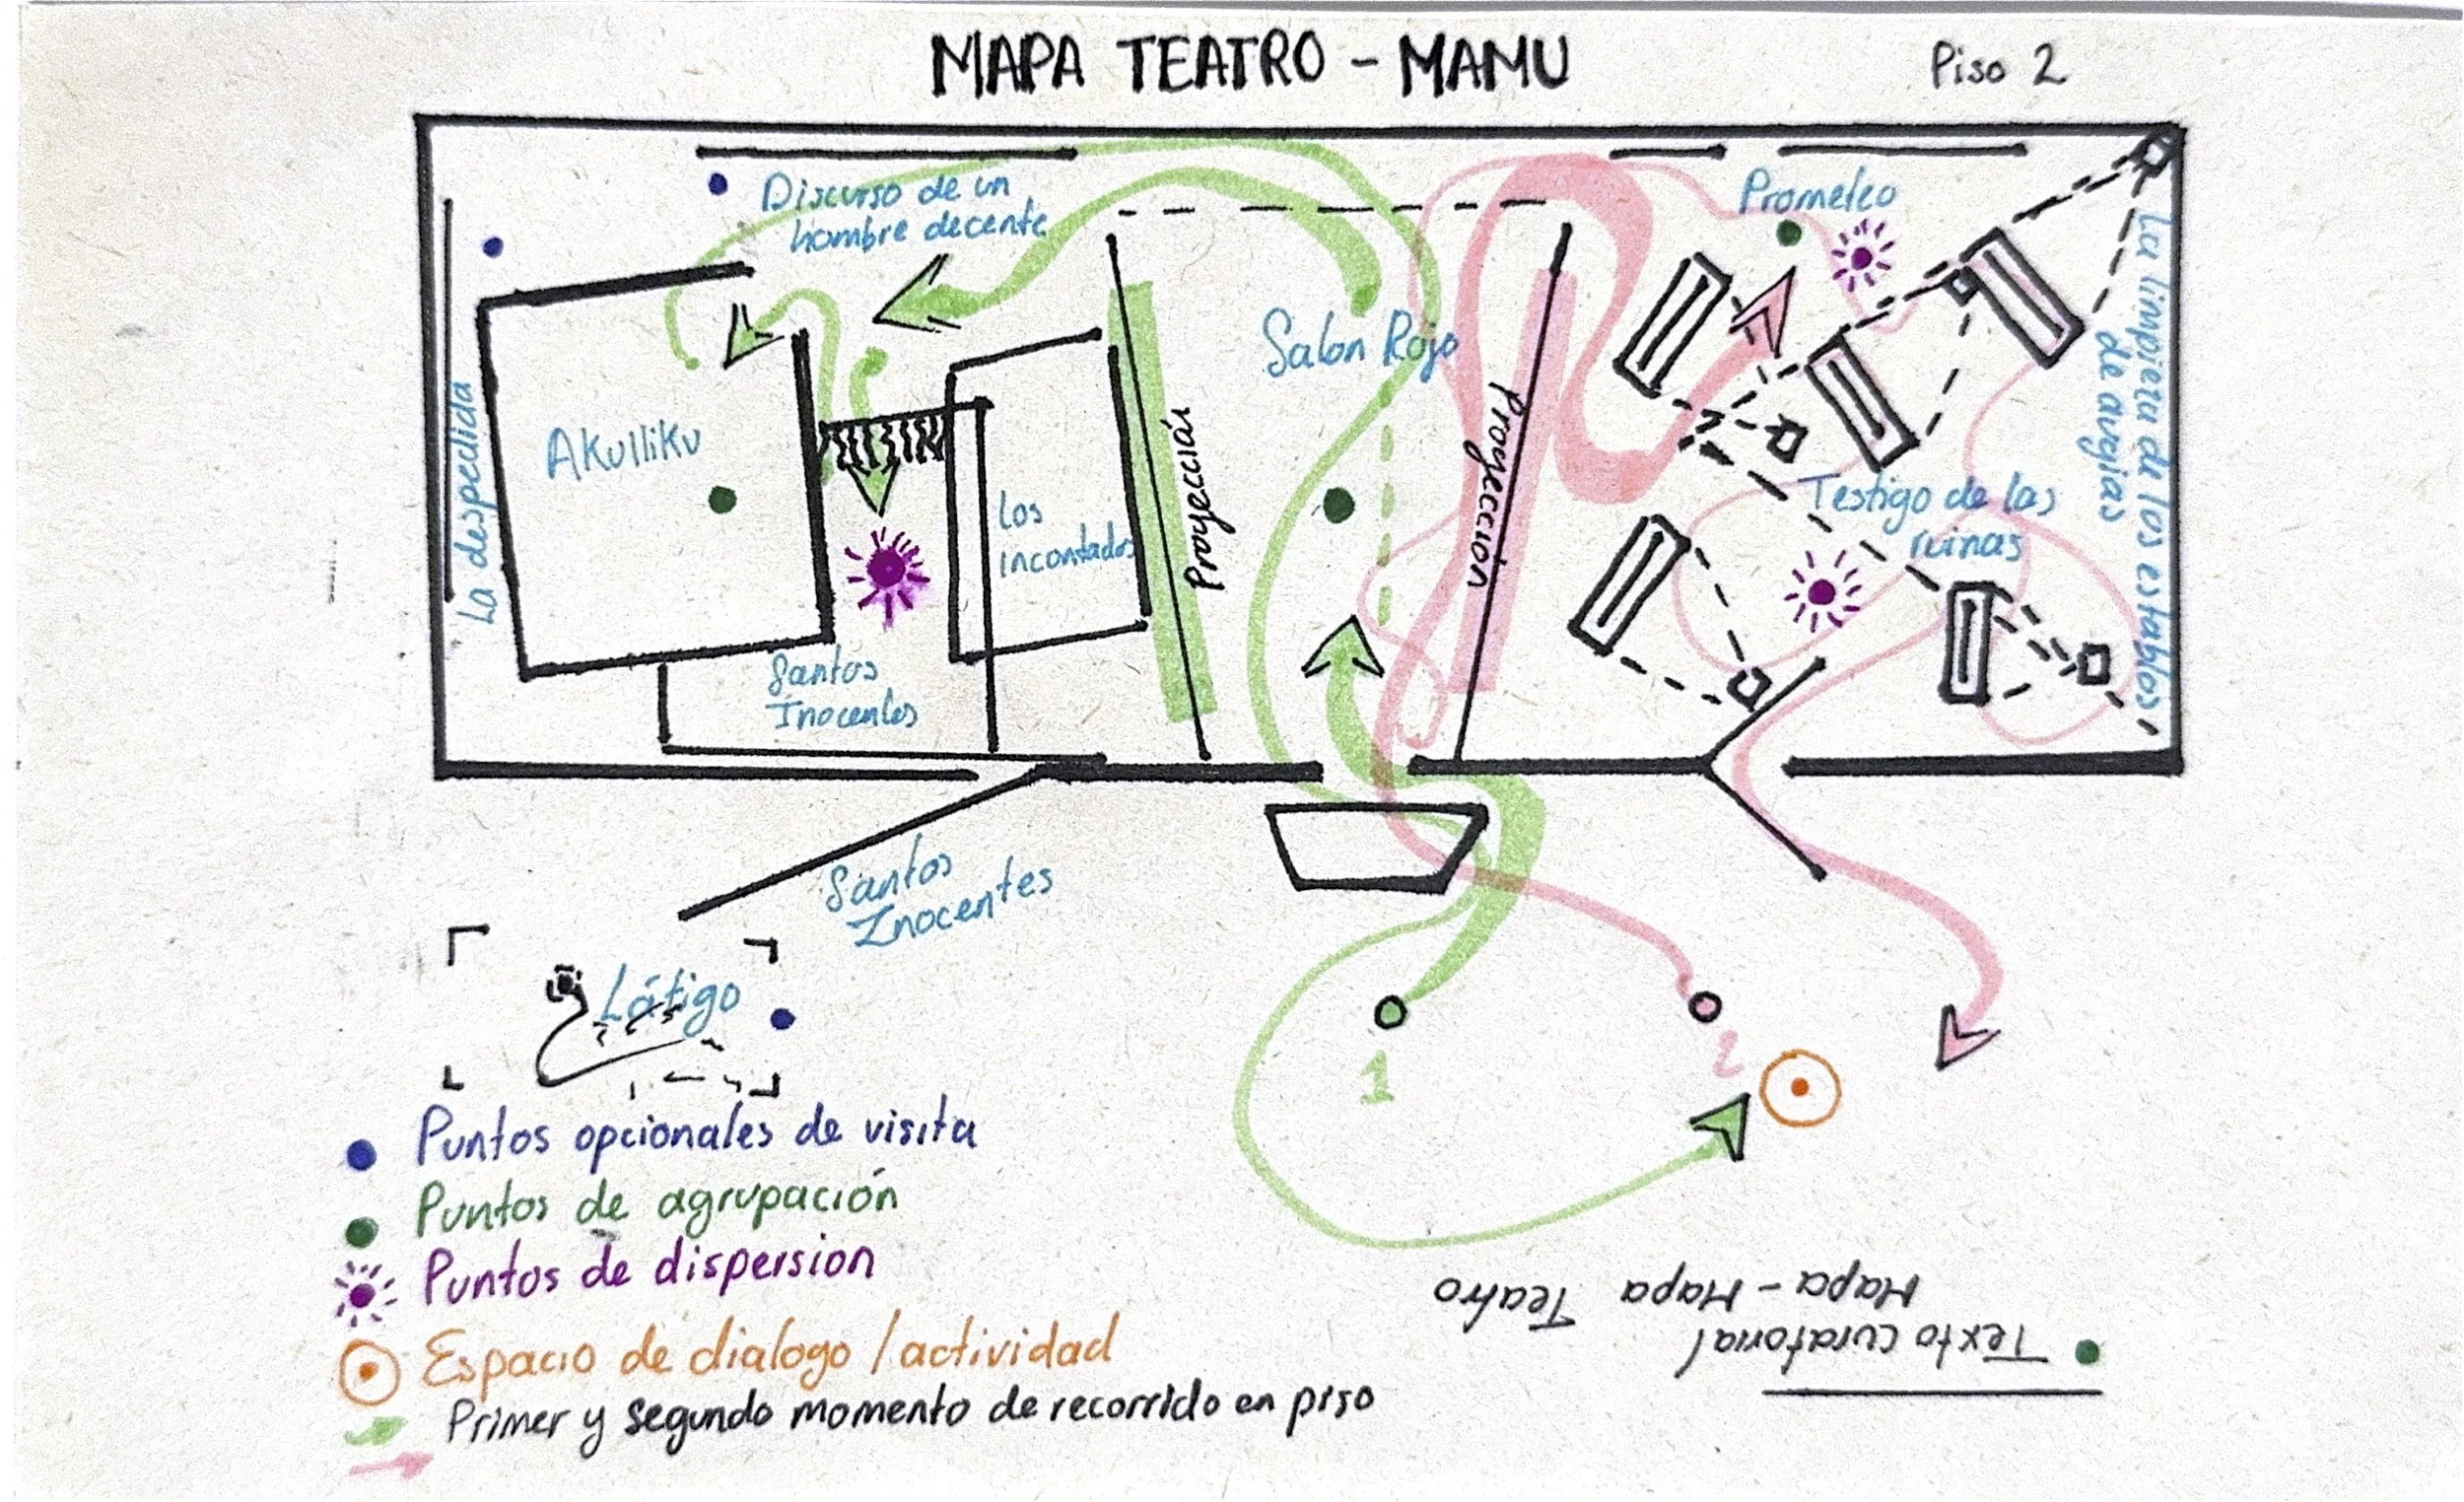 MAPA TEATRO - MAMU
Piso 2
Discurso de un
hombre decente
Prometeo
La limpieza de los establos
de augias
Salon Rojo
La despedida
Akulliku
Los
incontados
Proyección
Proyeccion
Testigo de las
ruinas
Santos
Inocentes
Santos
Inocentes
Látigo
1
2
Puntos opcionales de visita
Puntos de agrupación
Puntos de dispersion
Espacio de dialogo / actividad
Primer y segundo momento de recorrido en piso
Texto curatorial
Mapa - Mapa Teatro